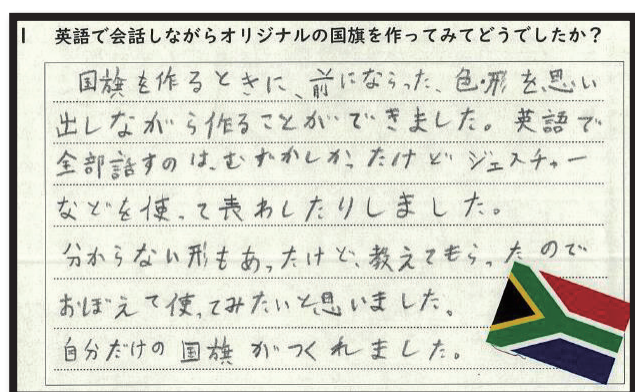 1 英語で会話しながらオリジナルの国旗を作ってみてどうでしたか?
国旗を作るときに、前にならった、色・形を思い
出しながら作ることができました。英語で
全部話すのは、むずかしかったけど ジェスチャー
などを使って表わしたりしました。
分からない形もあったけど、教えてもらったので
おぼえて使ってみたいと思いました。
自分だけの国旗がつくれました。